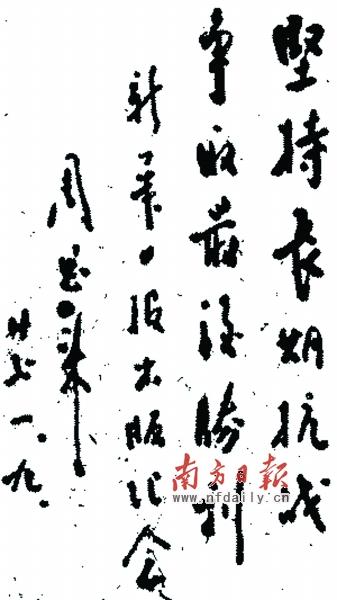 堅持長期抗戰
爭取最後勝利
新華日報出版紀念
周恩來
廿七、一、九、
南方日報
www.nfdaily.cn